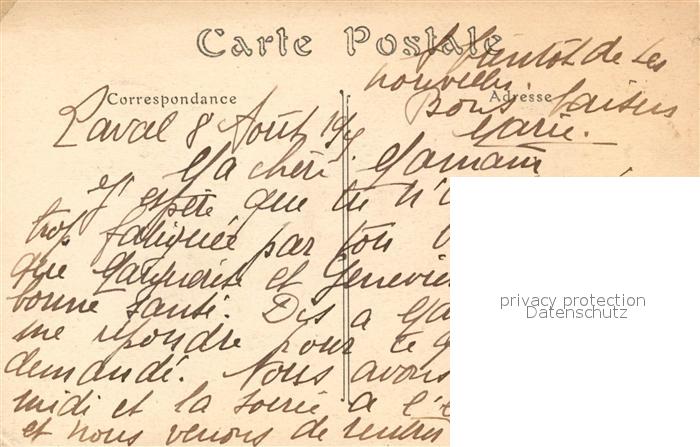 Carte Postale
Correspondance
Adresse
bientôt de tes
nouvelles
Bons baisers
Marie.
Laval 8 Août
Ma chère Maman
J'espère que tu n'
trop fatiguée par ton
que Marguerite et Geneviè
bonne santé. Dis a Ma
me répondre pour ce q
demandé. Nous avons
midi et la soirée a l'
et nous venons de rentrer
privacy protection
Datenschutz